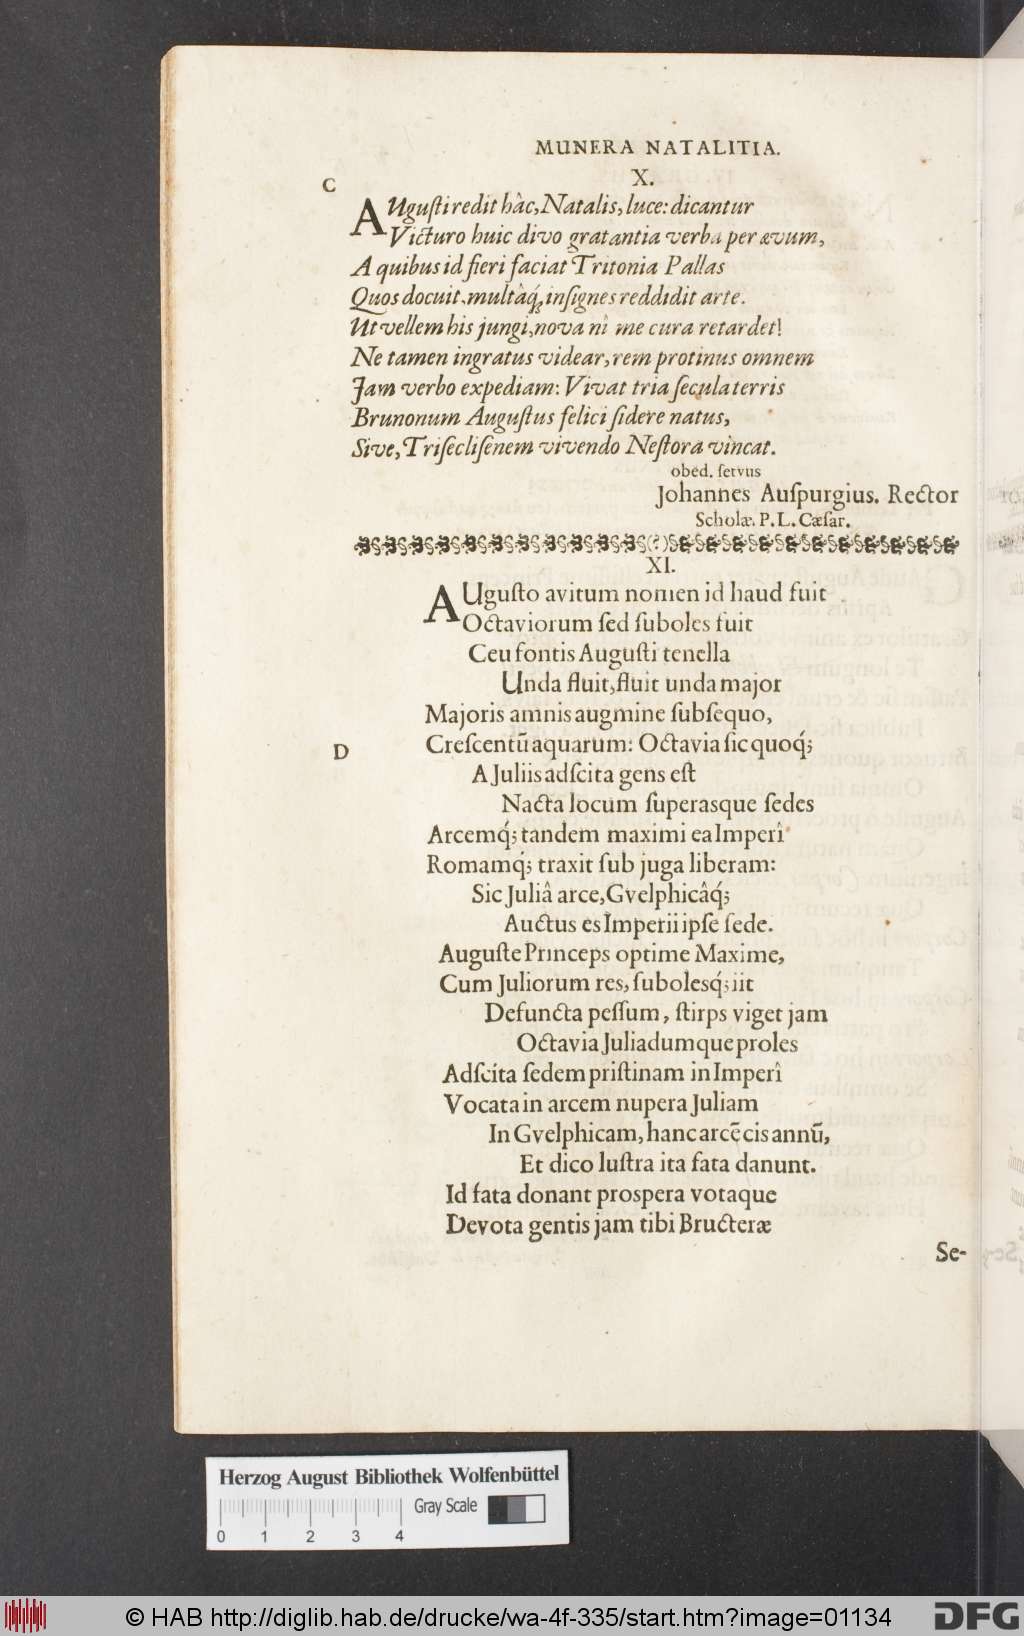 MUNERA NATALITIA.
X.
C
AUguſti redit hâc, Natalis, luce: dicantur
Victuro huic divo gratantia verba per ævum,
A quibus id fieri faciat Tritonia Pallas
Quos docuit, multâq́; inſignes reddidit arte.
Ut vellem his jungi, nova nî me cura retardet!
Ne tamen ingratus videar, rem protinus omnem
Jam verbo expediam: Vivat tria ſecula terris
Brunonum Auguſtus felici ſidere natus,
Sive, Triſecliſenem vivendo Neſtora vincat.
obed. ſervus
Johannes Auſpurgius. Rector
Scholæ. P. L. Cæſar.
XI.
AUguſto avitum nomen id haud fuit
Octaviorum ſed ſuboles fuit
Ceu fontis Auguſti tenella
Unda fluit, fluit unda major
Majoris amnis augmine ſubſequo,
D
Creſcentũ aquarum: Octavia ſic quoq́;
A Juliis adſcita gens eſt
Nacta locum ſuperasque ſedes
Arcemq́; tandem maximi ea Imperî
Romamq́; traxit ſub juga liberam:
Sic Juliâ arce, Gvelphicâq́;
Auctus es Imperii ipſe ſede.
Auguſte Princeps optime Maxime,
Cum Juliorum res, ſubolesq́; iit
Defuncta peſſum, ſtirps viget jam
Octavia Juliadumque proles
Adſcita ſedem priſtinam in Imperî
Vocata in arcem nupera Juliam
In Gvelphicam, hanc arcẽ cis annũ,
Et dico luſtra ita fata danunt.
Id fata donant prospera votaque
Devota gentis jam tibi Bructeræ
Se-
Herzog August Bibliothek Wolfenbüttel
Gray Scale
0 1 2 3 4
© HAB http://diglib.hab.de/drucke/wa-4f-335/start.htm?image=01134
DFG